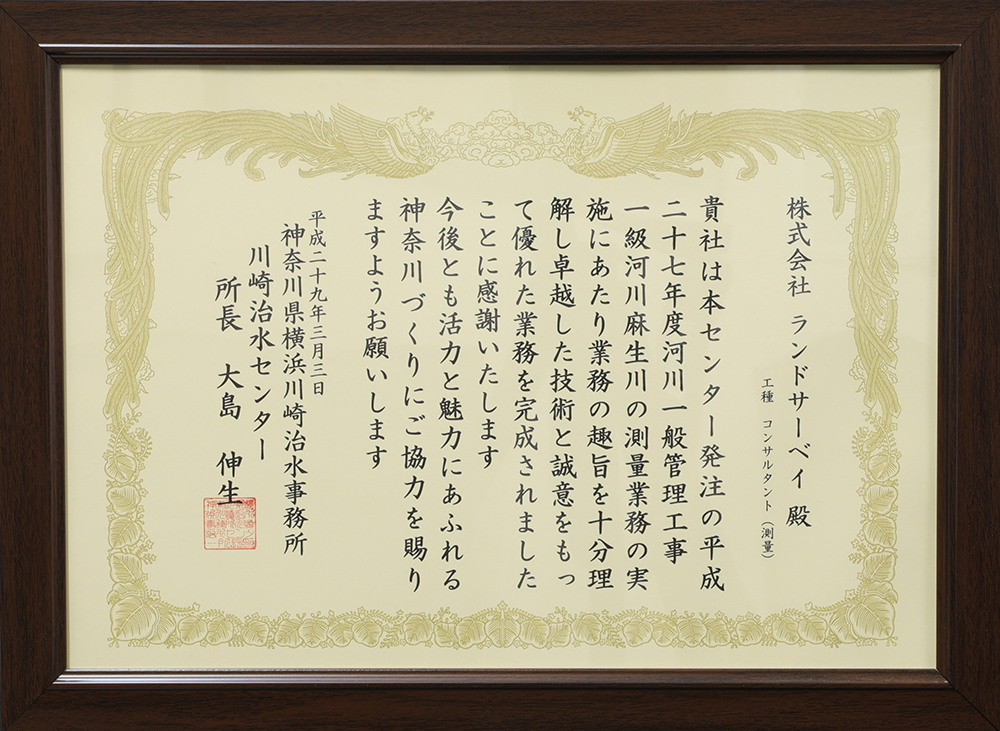 株式会社 ランドサーベイ 殿
工種 コンサルタント（測量）
貴社は本センター発注の平成
二十七年度河川一般管理工事
一級河川麻生川の測量業務の実
施にあたり業務の趣旨を十分理
解し卓越した技術と誠意をもっ
て優れた業務を完成されました
ことに感謝いたします
今後とも活力と魅力にあふれる
神奈川づくりにご協力を賜り
ますようお願いします
平成二十九年三月三日
神奈川県横浜川崎治水事務所
川崎治水センター
所長 大島 伸生